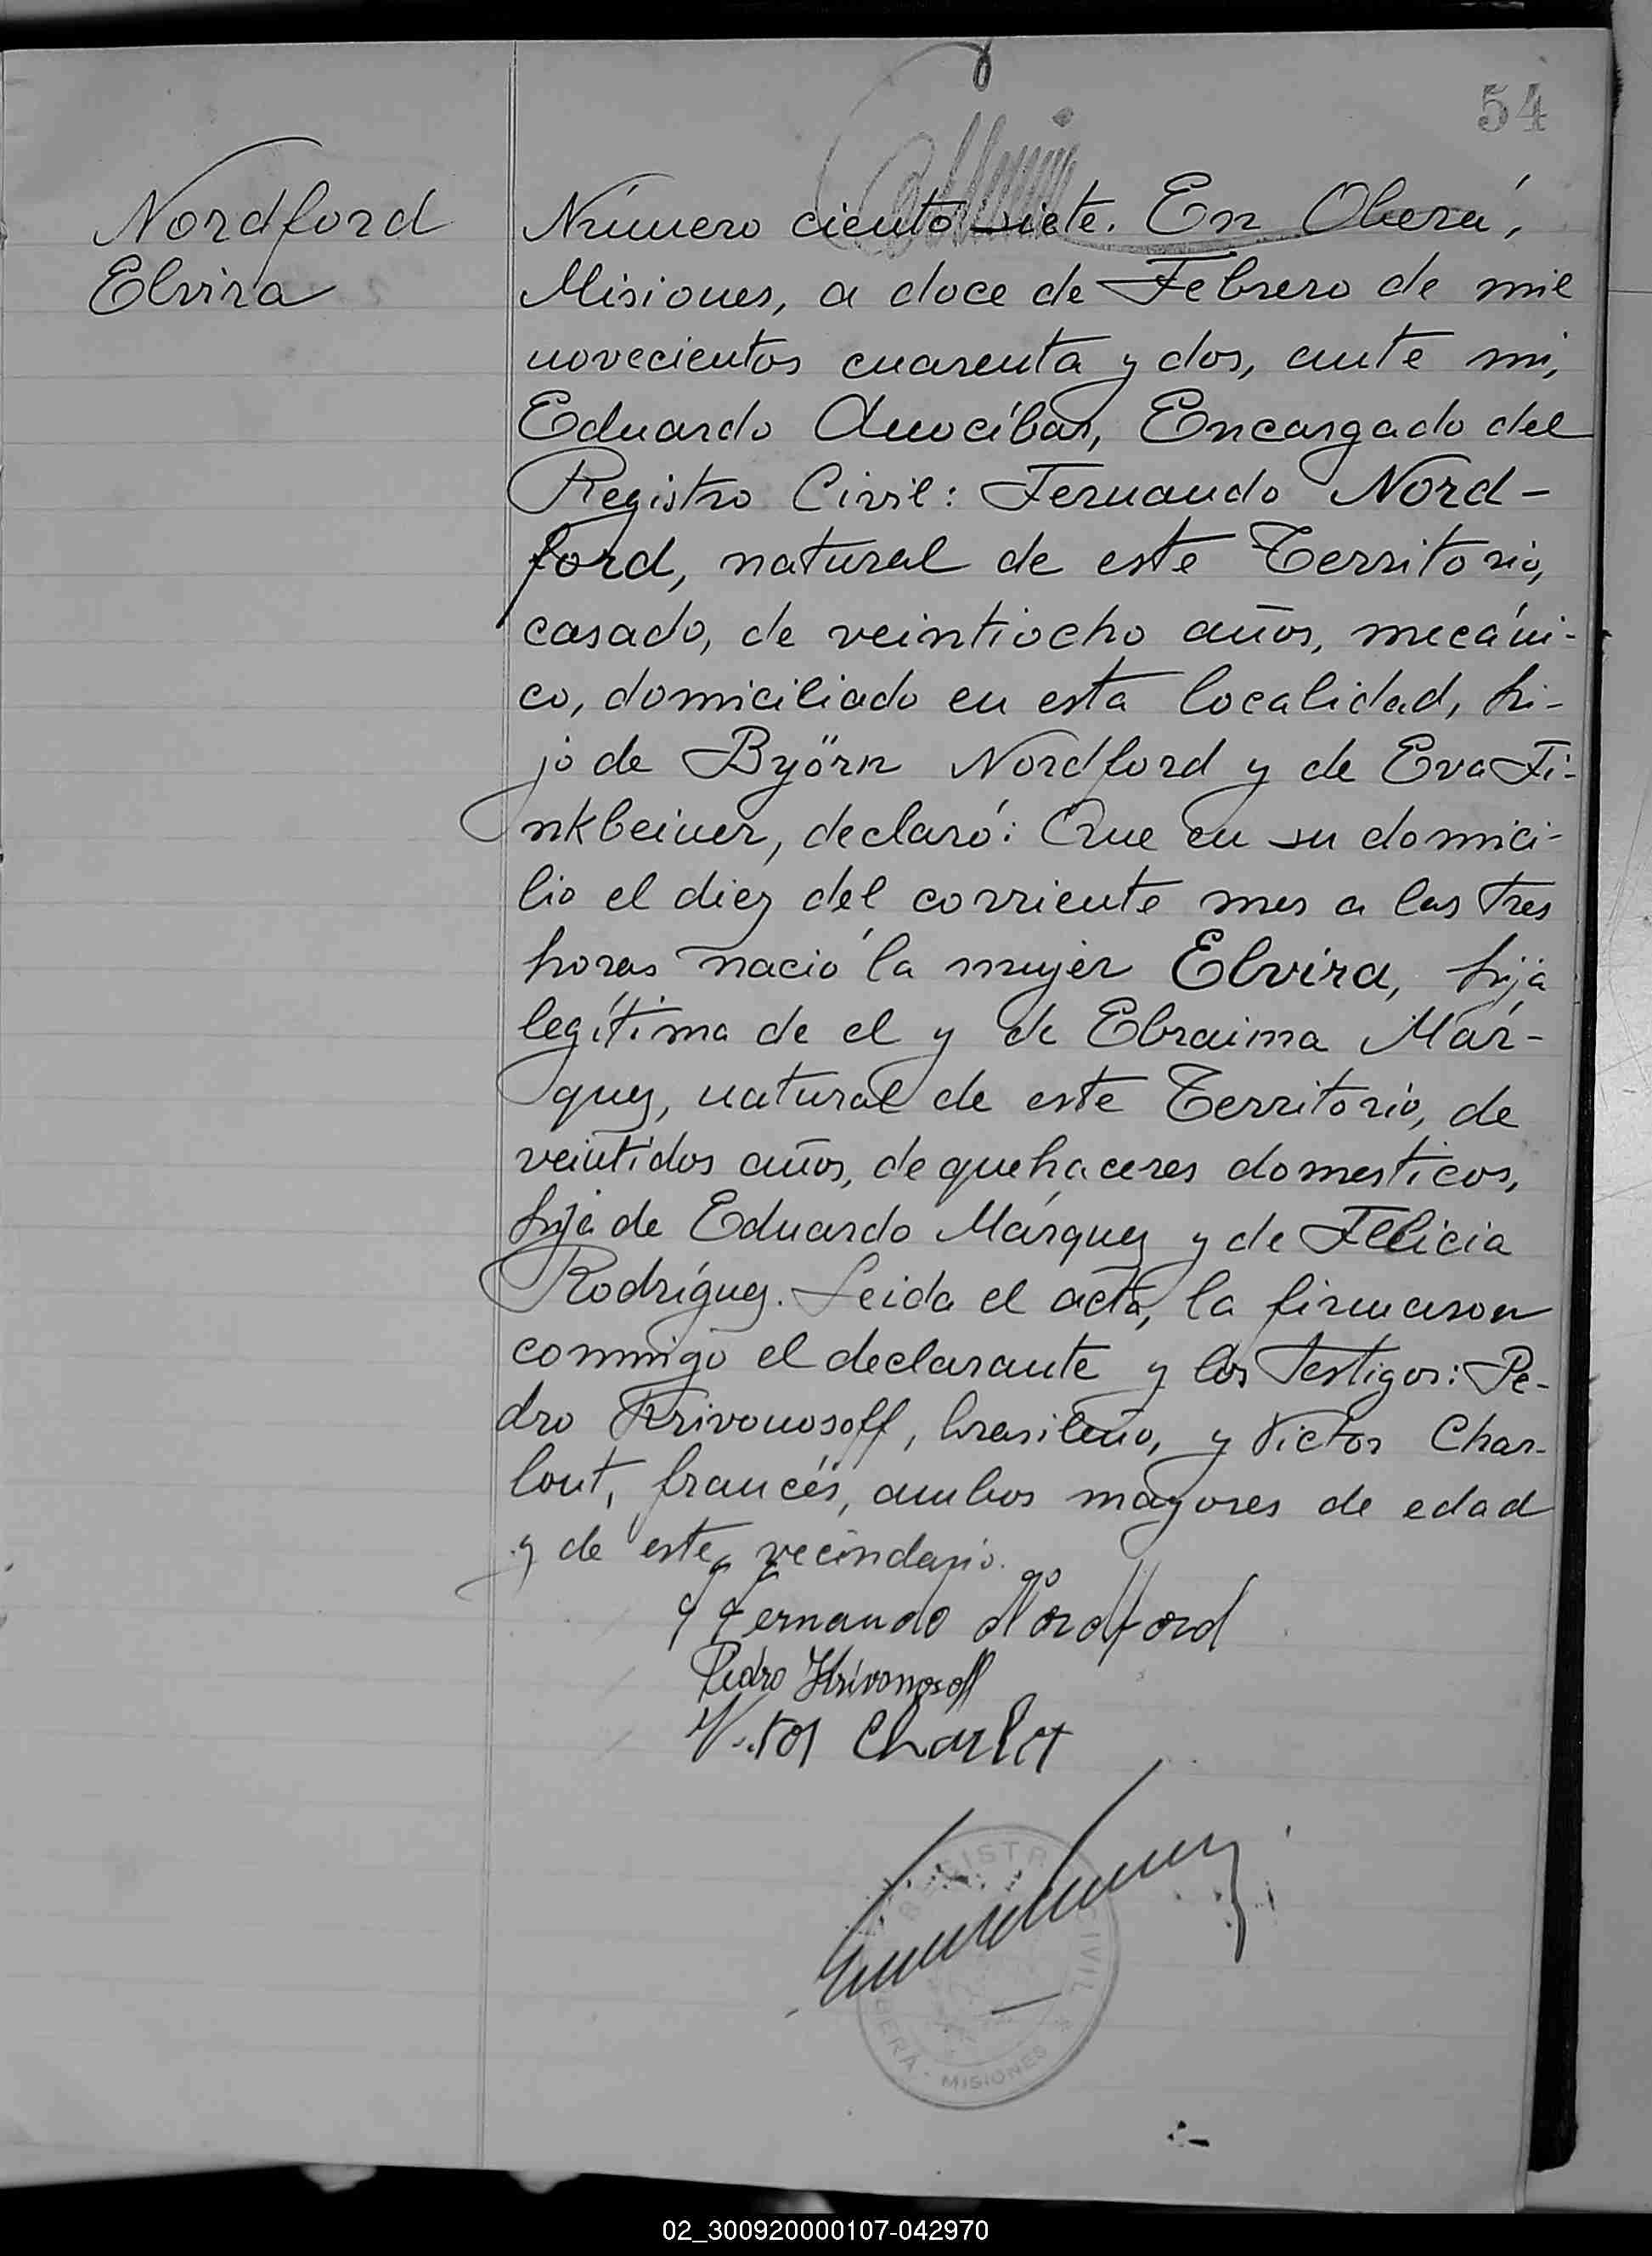 54
Nordford
Elvira
Número ciento siete. En Oberá,
Misiones, a doce de Febrero de mil
novecientos cuarenta y dos, ante mi,
Eduardo Amocíbar, Encargado del
Registro Civil: Fernando Nord-
ford, natural de este Territorio,
casado, de veintiocho años, mecáni-
co, domiciliado en esta localidad, hi-
jo de Byörn Nordford y de Eva Fi-
nkbeiner, declaró: Que en su domici-
lio el diez del corriente mes a las tres
horas nació la mujer Elvira, hija
legítima de el y de Ebraima Már-
quez, natural de este Territorio, de
veintidos años, de quehaceres domesticos,
hija de Eduardo Márquez y de Felicia
Rodríguez. Leida el acta, la firmaron
conmigo el declarante y los testigos: Pe-
dro Krivonosoff, brasileño, y Victor Char-
lout, francés, ambos mayores de edad
y de este vecindario.
Fernando Nordford
Pedro Krivonosoff
Charlot
REGISTRO CIVIL
OBERÁ - MISIONES
02_300920000107-042970